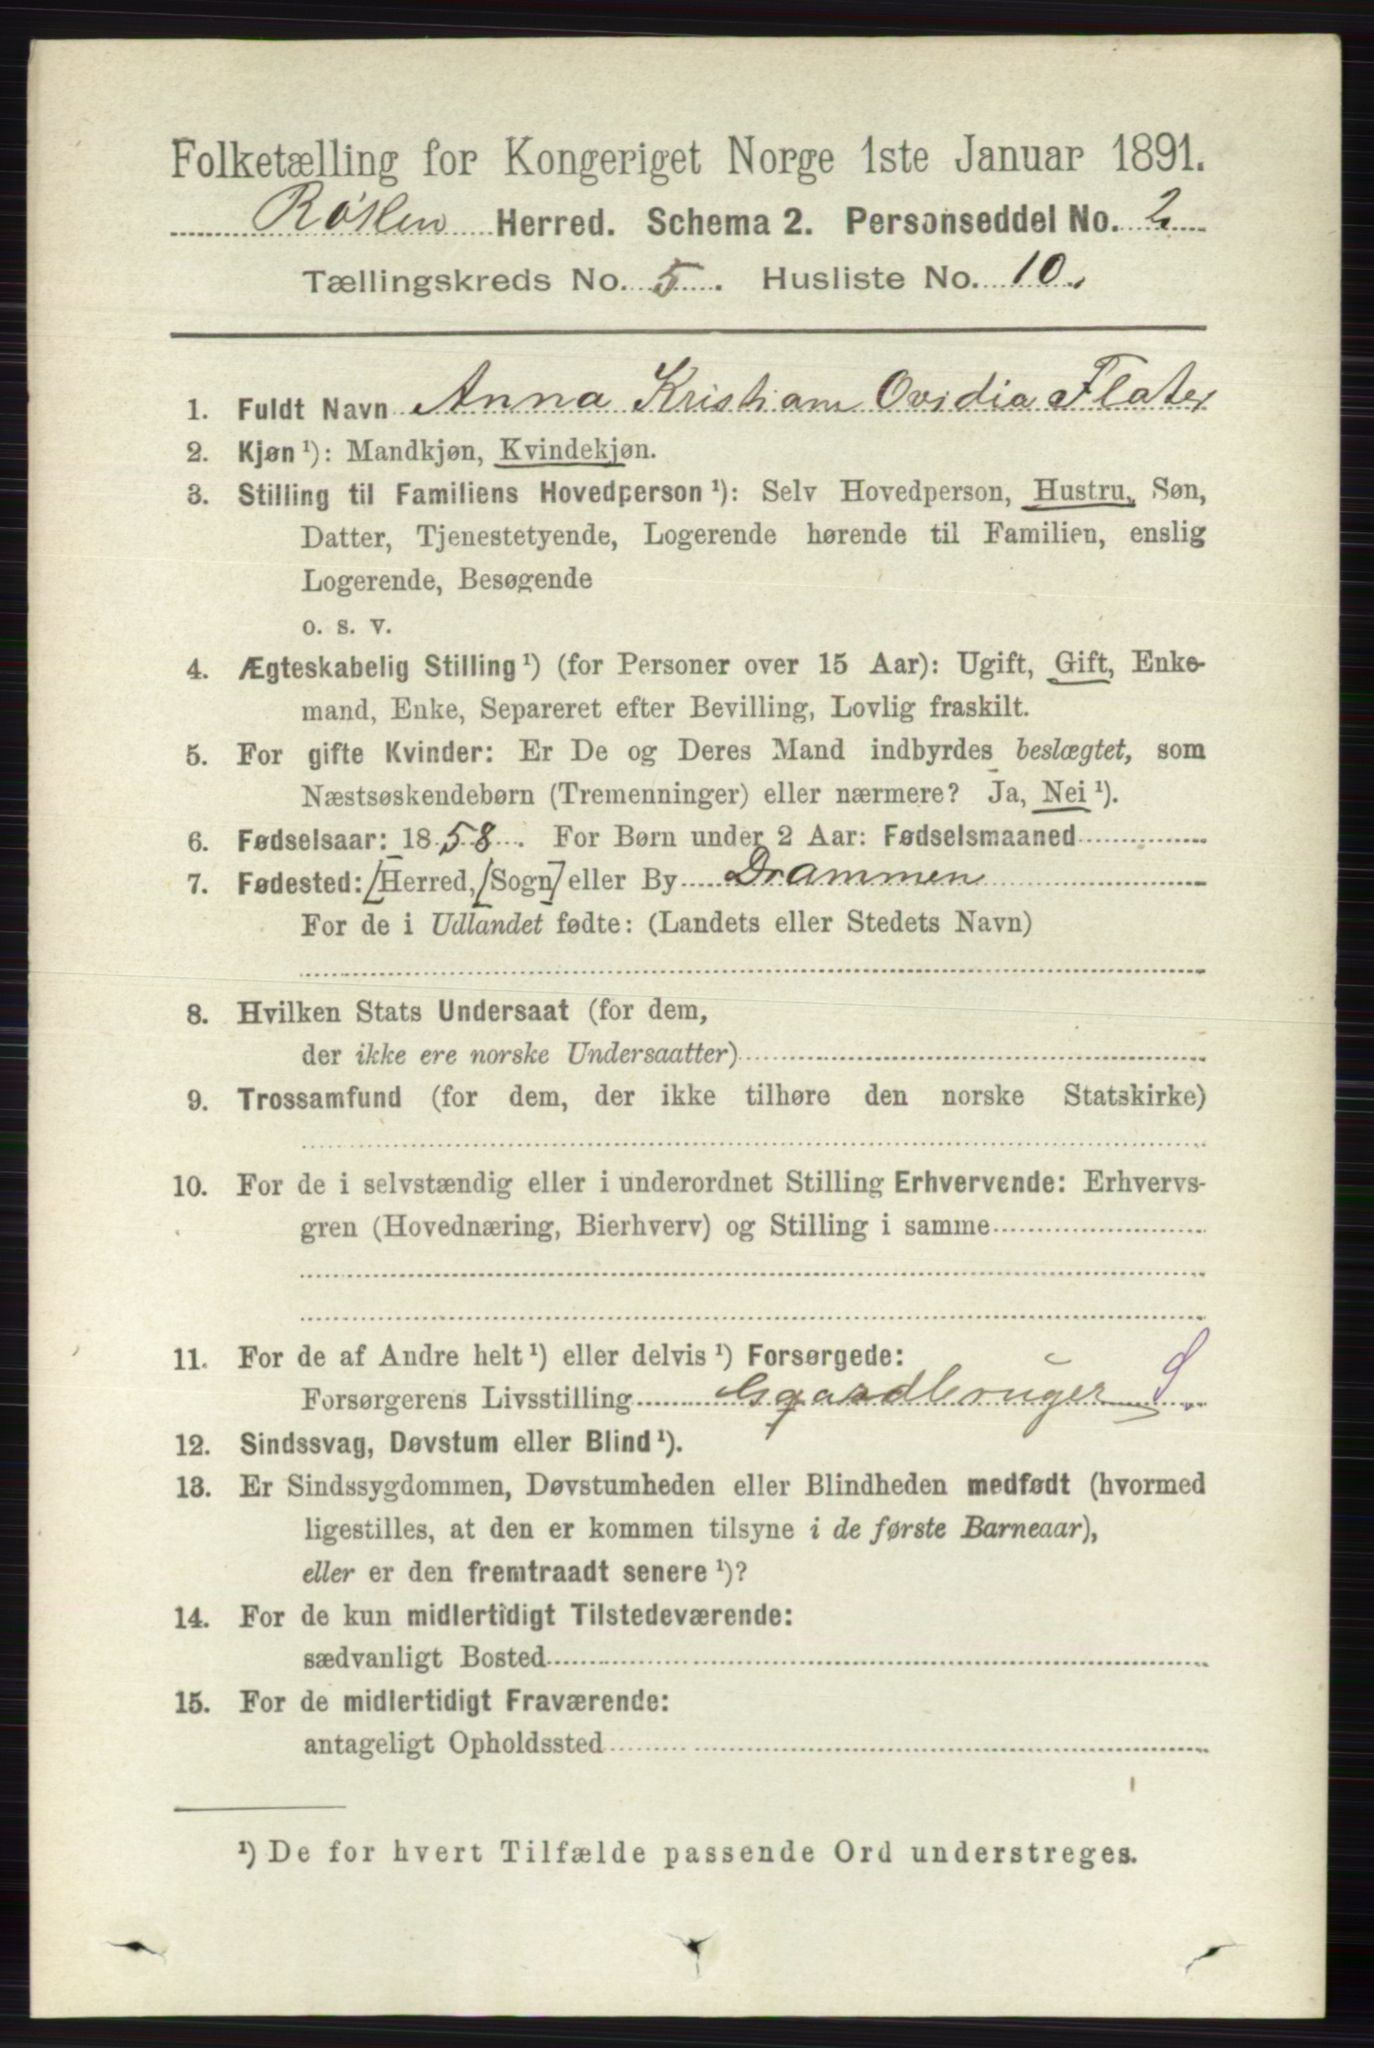 Folketælling for Kongeriget Norge 1ste Januar 1891.
Røken Herred. Schema 2. Personseddel No. 2
Tællingskreds No. 5. Husliste No. 10.
1. Fuldt Navn Anna Kristiane Ovidia Flater
2. Kjøn ¹): Mandkjøn, Kvindekjøn.
3. Stilling til Familiens Hovedperson ¹): Selv Hovedperson, Hustru, Søn,
Datter, Tjenestetyende, Logerende hørende til Familien, enslig
Logerende, Besøgende
o. s. v.
4. Ægteskabelig Stilling ¹) (for Personer over 15 Aar): Ugift, Gift, Enke-
mand, Enke, Separeret efter Bevilling, Lovlig fraskilt.
5. For gifte Kvinder: Er De og Deres Mand indbyrdes beslægtet, som
Næstsøskendebørn (Tremenninger) eller nærmere? Ja, Nei ¹).
6. Fødselsaar: 1858. For Børn under 2 Aar: Fødselsmaaned
7. Fødested: [Herred, [Sogn] eller By Drammen
For de i Udlandet fødte: (Landets eller Stedets Navn)
8. Hvilken Stats Undersaat (for dem,
der ikke ere norske Undersaatter)
9. Trossamfund (for dem, der ikke tilhøre den norske Statskirke)
10. For de i selvstændig eller i underordnet Stilling Erhvervende: Erhvervs-
gren (Hovednæring, Bierhverv) og Stilling i samme
11. For de af Andre helt ¹) eller delvis ¹) Forsørgede:
Forsørgerens Livsstilling Gaardbruger S
12. Sindssvag, Døvstum eller Blind ¹).
13. Er Sindssygdommen, Døvstumheden eller Blindheden medfødt (hvormed
ligestilles, at den er kommen tilsyne i de første Barneaar),
eller er den fremtraadt senere ¹)?
14. For de kun midlertidigt Tilstedeværende:
sædvanligt Bosted
15. For de midlertidigt Fraværende:
antageligt Opholdssted
¹) De for hvert Tilfælde passende Ord understreges.